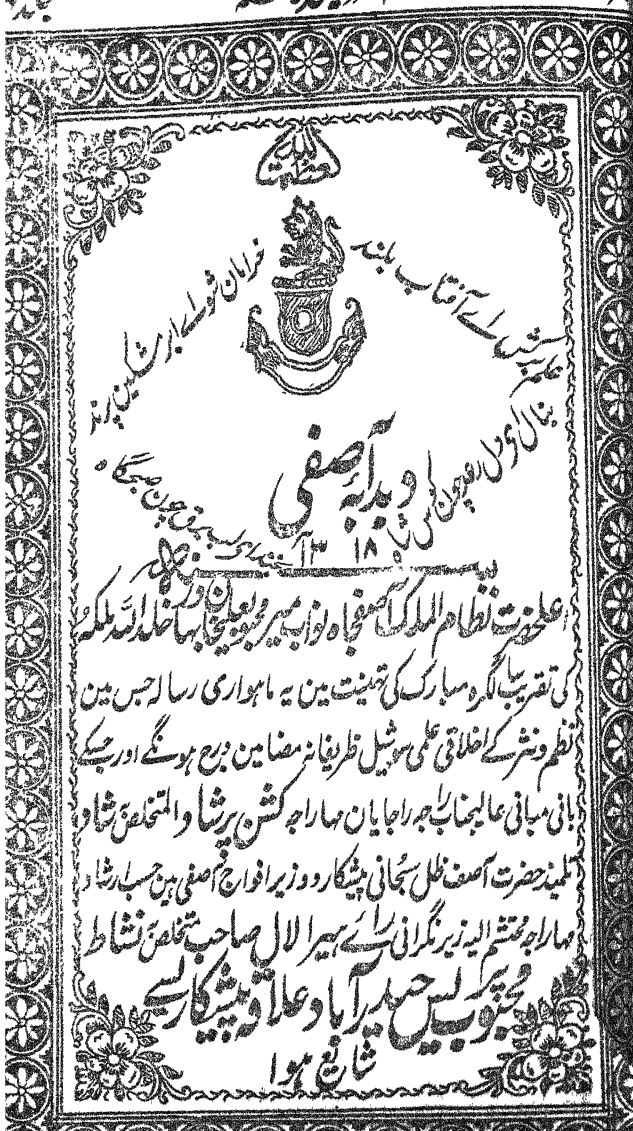 العظمت للہ
خرامان شو اے ابر مشکین پرند
برآی سر آتش اے آفتاب بلند
بنال ای دل رعد چون کوس شاہ
بخند ای لب برق چون صبحگاہ
دبدبہ آصفی
اعلحضرت نظام الملک آصفجاہ نواب میر محبوبعلیخان بہادر خلد اللہ ملکہ
کی تقریب سالگرہ مبارک کی تہنیت مین یہ ماہواری رسالہ جس مین
نظم و نثر کے اخلاقی علمی سوشیل ظریفانہ مضامین درج ہونگے اور جسکے
بانی مبانی عالیجناب راجہ راجایان مہاراجہ کشن پرشاد المتخلص شاد
تلمیذ حضرت آصف ظل سبحانی پیشکار و وزیر افواج آصفی ہین حسب ارشاد
مہاراجہ محتشم الیہ زیر نگرانی رائے ہیرا لال صاحب متخلص نشاط
محبوب پریس حیدرآباد علاقہ پیشکاری سے
شایع ہوا